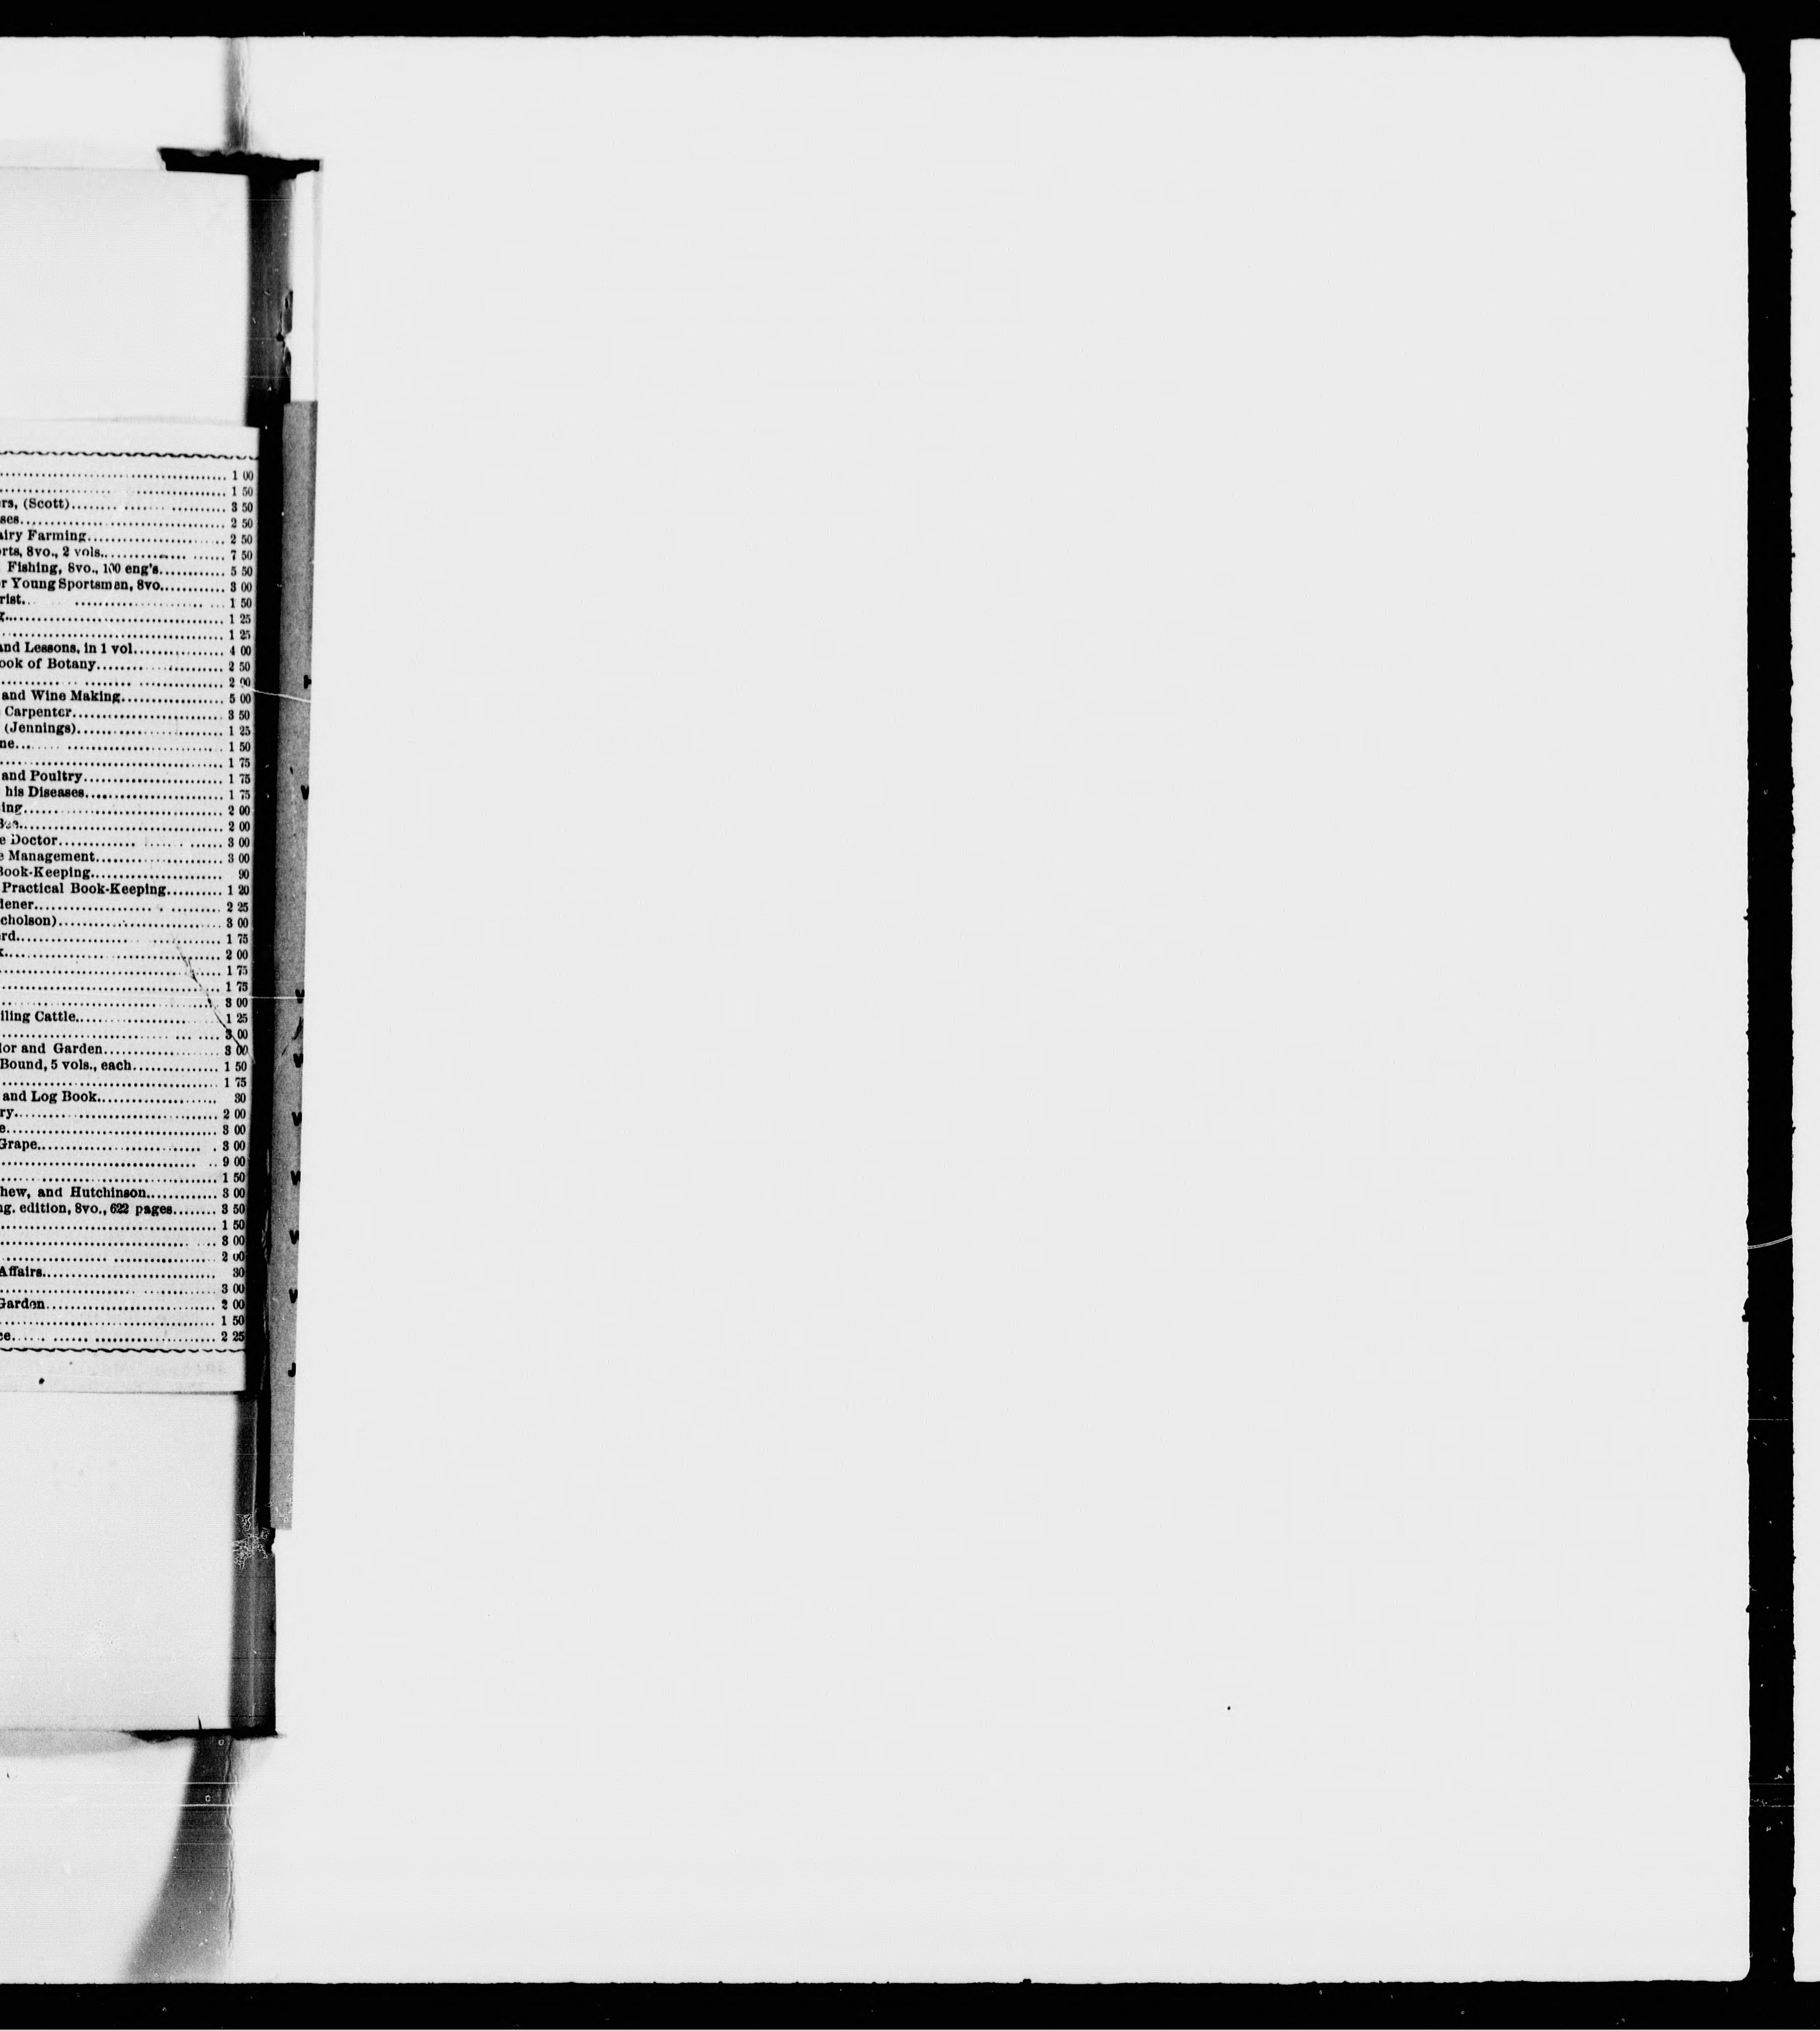 1 00
1 50
rs, (Scott) 3 50
ses 2 50
airy Farming 2 50
rts, 8vo., 2 vols. 7 50
Fishing, 8vo., 100 eng's 5 50
r Young Sportsman, 8vo 3 00
rist 1 50
g 1 25
1 25
and Lessons, in 1 vol 4 00
ook of Botany 2 50
2 00
and Wine Making 5 00
Carpenter 3 50
(Jennings) 1 25
ne 1 50
1 75
and Poultry 1 75
his Diseases 1 75
ing 2 00
Bee 2 00
e Doctor 3 00
e Management 3 00
Book-Keeping 90
Practical Book-Keeping 1 20
dener 2 25
cholson) 3 00
rd 1 75
k 2 00
1 75
1 75
3 00
iling Cattle 1 25
3 00
lor and Garden 3 00
Bound, 5 vols., each 1 50
1 75
and Log Book 30
ry 2 00
e 3 00
Grape 3 00
9 00
1 50
hew, and Hutchinson 3 00
ng. edition, 8vo., 622 pages 3 50
1 50
3 00
2 00
Affairs 30
3 00
Garden 2 00
1 50
ce 2 25